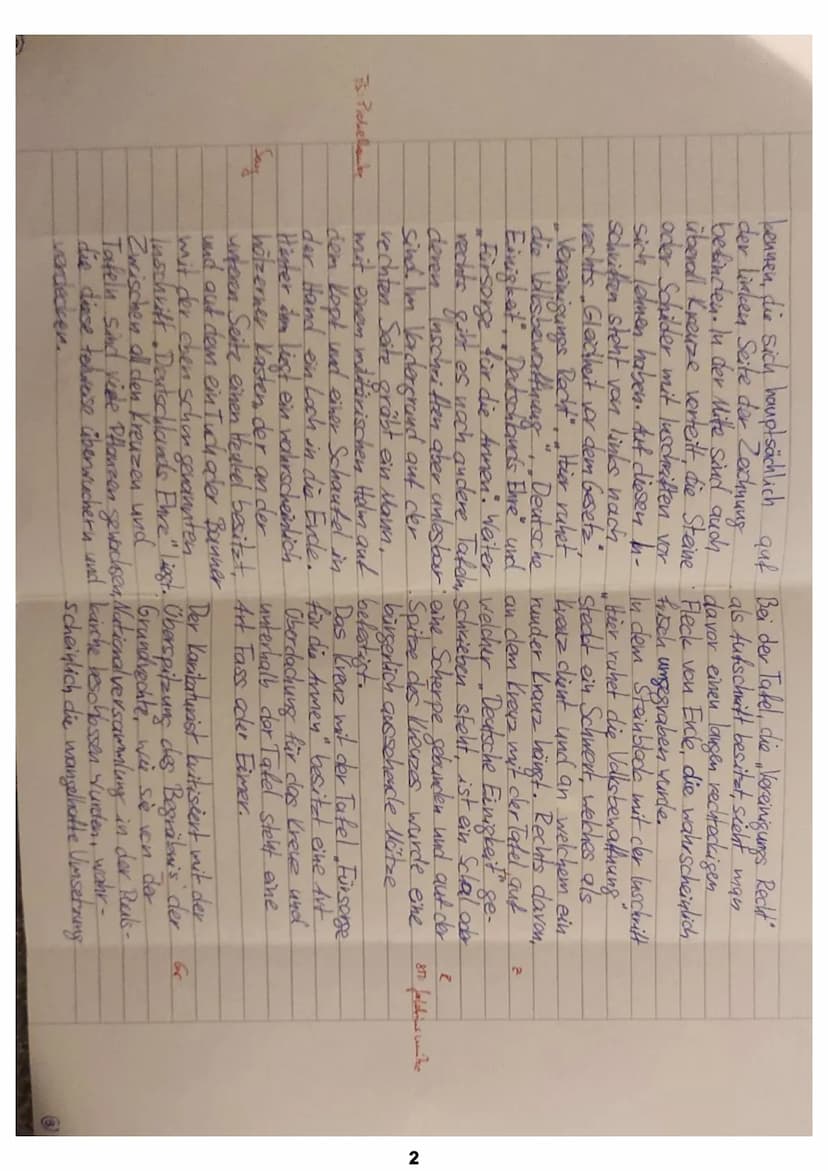 kennen, die sich hauptsächlich auf
der linken Seite der Zeichnung
befinden. In der Mitte sind auch
überall Kreuze verteilt, die Steine
oder Schilder mit Inschriften vor
sich lehnen haben. Auf diesen In-
schriften steht von links nach
rechts „Gleichheit vor dem Gesetz",
„Vereinigungs Recht", „Hier ruhet
die Volksbewaffnung", „Deutsche
Einigkeit", „Deutschlands Ehre" und
„Fürsorge für die Armen". Weiter
rechts gibt es noch andere Tafeln,
deren Inschriften aber unlesbar
sind. Im Vordergrund auf der
rechten Seite gräbt ein Mann,
mit einem militärischen Helm auf
Pickelhaube
dem Kopf und einer Schaufel in
der Hand ein Loch in die Erde.
Hinter ihm liegt ein wahrscheinlich
hölzerner Kasten, der an der
unteren Seite einen Henkel besitzt,
und auf dem ein Tuch oder Banner
mit der oben schon genannten
Inschrift „Deutschlands Ehre" liegt.
Zwischen all den Kreuzen und
Tafeln sind viele Pflanzen gewachsen,
die diese teilweise überwuchern und
verdecken.
Bei der Tafel, die „Vereinigungs Recht"
als Aufschrift besitzt, sieht man
davor einen langen rechteckigen
Fleck von Erde, die wahrscheinlich
frisch umgegraben wurde.
In dem Steinblock mit der Inschrift
„Hier ruhet die Volksbewaffnung"
steckt ein Schwert, welches als
Kreuz dient und an welchem ein
runder Kranz hängt. Rechts davon,
an dem Kreuz mit der Tafel, auf
z
welcher „Deutsche Einigkeit" ge-
schrieben steht, ist ein Schal oder
eine Scherpe gebunden und auf der
R
Spitze des Kreuzes wurde eine
bürgerlich aussehende Mütze
befestigt.
Das Kreuz mit der Tafel „Fürsorge
für die Armen" besitzt eine Art
Überdachung für das Kreuz und
unterhalb der Tafel steht eine
Art Fass oder Eimer.
Der Karikaturist kritisiert mit der
Gr
Überspitzung des Begräbnis der
Grundrechte, wie sie von der
Nationalversammlung in der Pauls-
kirche beschlossen wurden, wahr-
scheinlich die mangelhafte Umsetzung
3
2